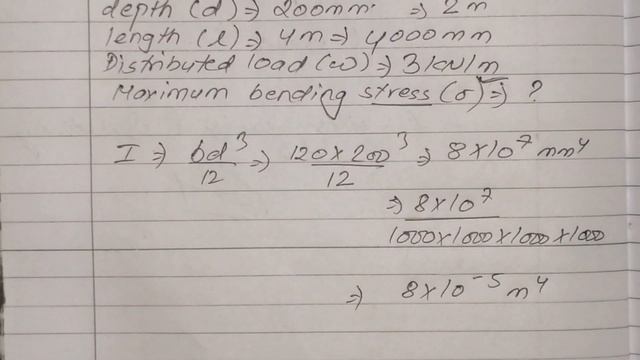 depth (d) ⇒ 200mm. ⇒ 2m
length (l) ⇒ 4m ⇒ 4000mm
Distributed load (ω) ⇒ 3kN/m
Maximum bending stress (σ) ⇒ ?
I ⇒ bd³/12 ⇒ 120×200³/12 ⇒ 8×10⁷ mm⁴
⇒ 8×10⁷/1000×1000×1000×1000
⇒ 8×10⁻⁵ m⁴